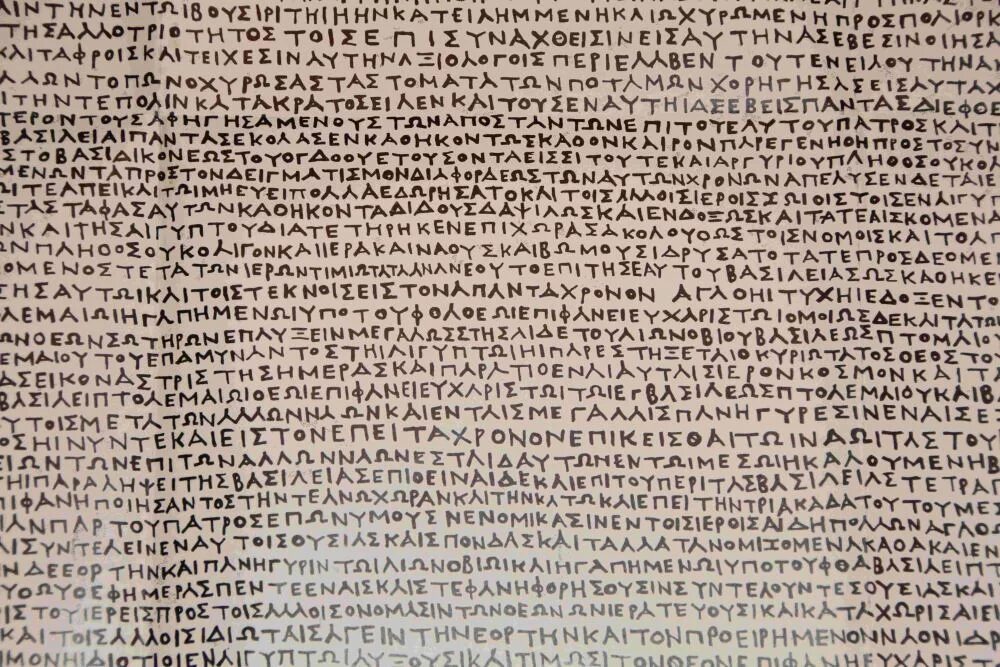 ΛΙΝΤΗΝΕΝΤΩΙΒΟΥΣΙΡΙΤΗΙΗΗΝΚΑΤΕΙΛΗΜΜΕΝΗΚΑΙΩΧΥΡΩΜΕΝΗΠΡΟΣΠΟΛΙΟΡΚ
ΤΗΣΑΛΛΟΤΡΙΟΤΗΤΟΣΤΟΙΣΕΠΙΣΥΝΑΧΘΕΙΣΙΝΕΙΣΑΥΤΗΝΑΣΕΒΕΣΙΝΟΙΗΣΑ
ΚΑΙΤΑΦΡΟΙΣΚΑΙΤΕΙΧΕΣΙΝΑΥΤΗΝΑΞΙΟΛΟΓΟΙΣΠΕΡΙΕΛΑΒΕΝΤΟΥΤΕΝΕΙΛΟΥΤΗΝΑΝ
ΛΛΩΝΤΟΠΩΝΟΧΥΡΩΣΑΣΤΑΣΤΟΜΑΤΑΤΩΝΠΟΤΑΜΩΝΧΟΡΗΓΗΣΑΣΕΙΣΑΥΤΑΧ
ΙΤΗΝΤΕΠΟΛΙΝΚΑΤΑΚΡΑΤΟΣΕΙΛΕΝΚΑΙΤΟΥΣΕΝΑΥΤΗΙΑΣΕΒΕΙΣΠΑΝΤΑΣΔΙΕΦΘΕ
ΤΕΡΟΝΤΟΥΣΑΦΗΓΗΣΑΜΕΝΟΥΣΤΩΝΑΠΟΣΤΑΝΤΩΝΕΠΙΤΟΥΕΑΥΤΟΥΠΑΤΡΟΣΚΑΙΤ
ΒΑΣΙΛΕΙΑΙΠΑΝΤΑΣΕΚΟΛΑΣΕΝΚΑΘΗΚΟΝΤΩΣΚΑΘΟΝΚΑΙΡΟΝΠΑΡΕΓΕΝΗΘΗΠΡΟΣΤΟΣΥΝ
ΣΤΟΒΑΣΙΛΙΚΟΝΕΩΣΤΟΥΟΓΔΟΟΥΕΤΟΥΣΟΝΤΑΕΙΣΣΙΤΟΥΤΕΚΑΙΑΡΓΥΡΙΟΥΠΛΗΘΟΣΟΥΚΟΛ
ΜΕΝΩΝΤΑΠΡΟΣΤΟΝΔΕΙΓΜΑΤΙΣΜΟΝΔΙΑΦΟΡΑΕΩΣΤΩΝΑΥΤΩΝΧΡΟΝΩΝΑΠΕΛΥΣΕΝΔΕΤΑΙΕ
ΩΙΤΕΑΠΕΙΚΑΙΤΩΙΜΗΕΥΕΙΠΟΛΛΑΕΔΩΡΗΣΑΤΟΚΑΙΤΟΙΣΑΛΛΟΙΣΙΕΡΟΙΣΖΩΙΟΙΣΤΟΙΣΕΝΑΙΓΥΠ
ΣΤΑΣΤΑΦΑΣΑΥΤΩΝΚΑΘΗΚΟΝΤΑΔΙΔΟΥΣΔΑΨΙΛΩΣΚΑΙΕΝΔΟΞΩΣΚΑΙΤΑΤΕΛΙΣΚΟΜΕΝΑ
ΝΚΑΙΤΗΣΑΙΓΥΠΤΟΥΔΙΑΤΕΤΗΡΗΚΕΝΕΠΙΧΩΡΑΣΑΚΟΛΟΥΘΩΣΤΟΙΣΝΟΜΟΙΣΚΑΙΤΟΑΠ
ΩΝΠΛΗΘΟΣΟΥΚΟΛΙΓΟΝΚΑΙΙΕΡΑΚΑΙΝΑΟΥΣΚΑΙΒΩΜΟΥΣΙΔΡΥΣΑΤΟΤΑΤΕΠΡΟΣΔΕΟΜΕΝ
ΟΜΕΝΟΣΤΕΤΑΤΩΝΙΕΡΩΝΤΙΜΙΩΤΑΤΑΑΝΑΝΕΟΥΤΟΕΠΙΤΗΣΕΑΥΤΟΥΒΑΣΙΛΕΙΑΣΩΣΚΑΘΗΚΕ
ΣΗΣΑΥΤΩΙΚΑΙΤΟΙΣΤΕΚΝΟΙΣΕΙΣΤΟΝΑΠΑΝΤΑΧΡΟΝΟΝ ΑΓΑΘΗΙΤΥΧΗΙΕΔΟΞΕΝΤΟ
ΛΕΜΑΙΩΙΗΓΑΠΗΜΕΝΩΙΥΠΟΤΟΥΦΘΑΘΕΩΙΕΠΙΦΑΝΕΙΕΥΧΑΡΙΣΤΩΙΟΜΟΙΩΣΔΕΚΑΙΤΑΤΩΝ
ΩΝΘΕΩΝΣΩΤΗΡΩΝΕΠΑΥΞΕΙΝΜΕΓΑΛΩΣΣΤΗΣΑΙΔΕΤΟΥΑΙΩΝΟΒΙΟΥΒΑΣΙΛΕΩΣΠΤΟΜΑΙΟΥ
ΕΜΑΙΟΥΤΟΥΕΠΑΜΥΝΑΝΤΟΣΤΗΙΑΙΓΥΠΤΩΙΗΙΠΑΡΕΣΤΗΞΕΤΑΙΟΚΥΡΙΩΤΑΤΟΣΘΕΟΣΤΟΥ
ΑΣΕΙΚΟΝΑΣΤΡΙΣΤΗΣΗΜΕΡΑΣΚΑΙΠΑΡΑΤΙΘΕΝΑΙΑΥΤΑΙΣΙΕΡΟΝΚΟΣΜΟΝΚΑΙΤΑ
ΒΑΣΙΛΕΙΠΤΟΛΕΜΑΙΩΙΘΕΩΙΕΠΙΦΑΝΕΙΕΥΧΑΡΙΣΤΩΙΤΩΙΕΓΒΑΣΙΛΕΩΣΠΤΟΛΕΜΑΙΟΥΚΑΙΒΑ
ΥΤΟΙΣΜΕΤΑΤΩΝΑΛΛΩΝΝΑΩΝΚΑΙΕΝΤΑΙΣΜΕΓΑΛΑΙΣΠΑΝΗΓΥΡΕΣΙΝΕΝΑΙΣΕΞ
ΟΣΗΙΝΥΝΤΕΚΑΙΕΙΣΤΟΝΕΠΕΙΤΑΧΡΟΝΟΝΕΠΙΚΕΙΣΘΑΙΤΩΙΝΑΩΙΤΑΣΤΟΥ
ΕΙΩΝΤΩΝΕΠΙΤΩΝΑΛΛΩΝΝΑΩΝΕΣΤΑΙΔΑΥΤΩΝΕΝΤΩΙΜΕΣΩΙΗΚΑΛΟΥΜΕΝΗΒ
ΓΗΙΠΑΡΑΛΗΨΕΙΤΗΣΒΑΣΙΛΕΙΑΣΕΠΙΘΕΙΝΑΙΔΕΚΑΙΕΠΙΤΟΥΠΕΡΙΤΑΣΒΑΣΙΛΕΙΑΣΤΕΤΡΑΓ
ΠΙΦΑΝΗΠΟΙΗΣΑΝΤΟΣΤΗΝΤΕΑΝΩΧΩΡΑΝΚΑΙΤΗΝΚΑΤΩΚΑΙΕΠΕΙΤΗΝΤΡΙΑΚΑΔΑΤΟΥΤΟΥΜΕΣ
ΙΑΝΠΑΡΤΟΥΠΑΤΡΟΣΕΠΩΝΥΜΟΥΣΝΕΝΟΜΙΚΑΣΙΝΕΝΤΟΙΣΙΕΡΟΙΣΑΙΔΗΠΟΛΛΩΝΑΓΑΘΩ
ΑΙΣΥΝΤΕΛΕΙΝΕΝΑΥΤΟΙΣΟΥΣΙΑΣΚΑΙΣΠΟΝΔΑΣΚΑΙΤΑΛΛΑΤΑΝΟΜΙΖΟΜΕΝΑΚΑΘΑΚΑΙΕΝ
ΙΝΔΕΕΟΡΤΗΝΚΑΙΠΑΝΗΓΥΡΙΝΤΩΙΑΙΩΝΟΒΙΩΙΚΑΙΗΓΑΠΗΜΕΝΩΙΥΠΟΤΟΥΦΘΑΒΑΣΙΛΕΙΠΤ
ΥΘΩΥΘΕΦΗΜΕΡΑΣΠΕΝΤΕΕΝΑΙΣΚΑΙΣΤΕΦΑΝΗΦΟΡΗΣΟΥΣΙΝΣΥΝΤΕΛΟΥΝΤΕΣΟΥΣΙΑΣΚΑΙ
ΡΙΣΤΟΥΙΕΡΕΙΣΠΡΟΣΤΟΙΣΑΛΛΟΙΣΟΝΟΜΑΣΙΝΤΩΝΘΕΩΝΩΝΙΕΡΑΤΕΥΟΥΣΙΚΑΙΚΑΤΑΧΩΡΙΣΑΙΕΙ
ΚΑΙΤΟΙΣΑΛΛΟΙΣΙΔΙΩΤΑΙΣΑΓΕΙΝΤΗΝΕΟΡΤΗΝΚΑΙΤΟΝΠΡΟΕΙΡΗΜΕΝΟΝΝΑΟΝΙΔΡ
ΙΜΟΝΗΙΔΙΟΤΙΟΙΕΝΑΙΓΥΠΤΩΙΑΥΞΟΥΣΙΚΑΙΤΙΜΩΣΙΤΟΝΘΕΟΝΕΠΙΦΑΝΗΕΥΧΑΡΙΣΤ